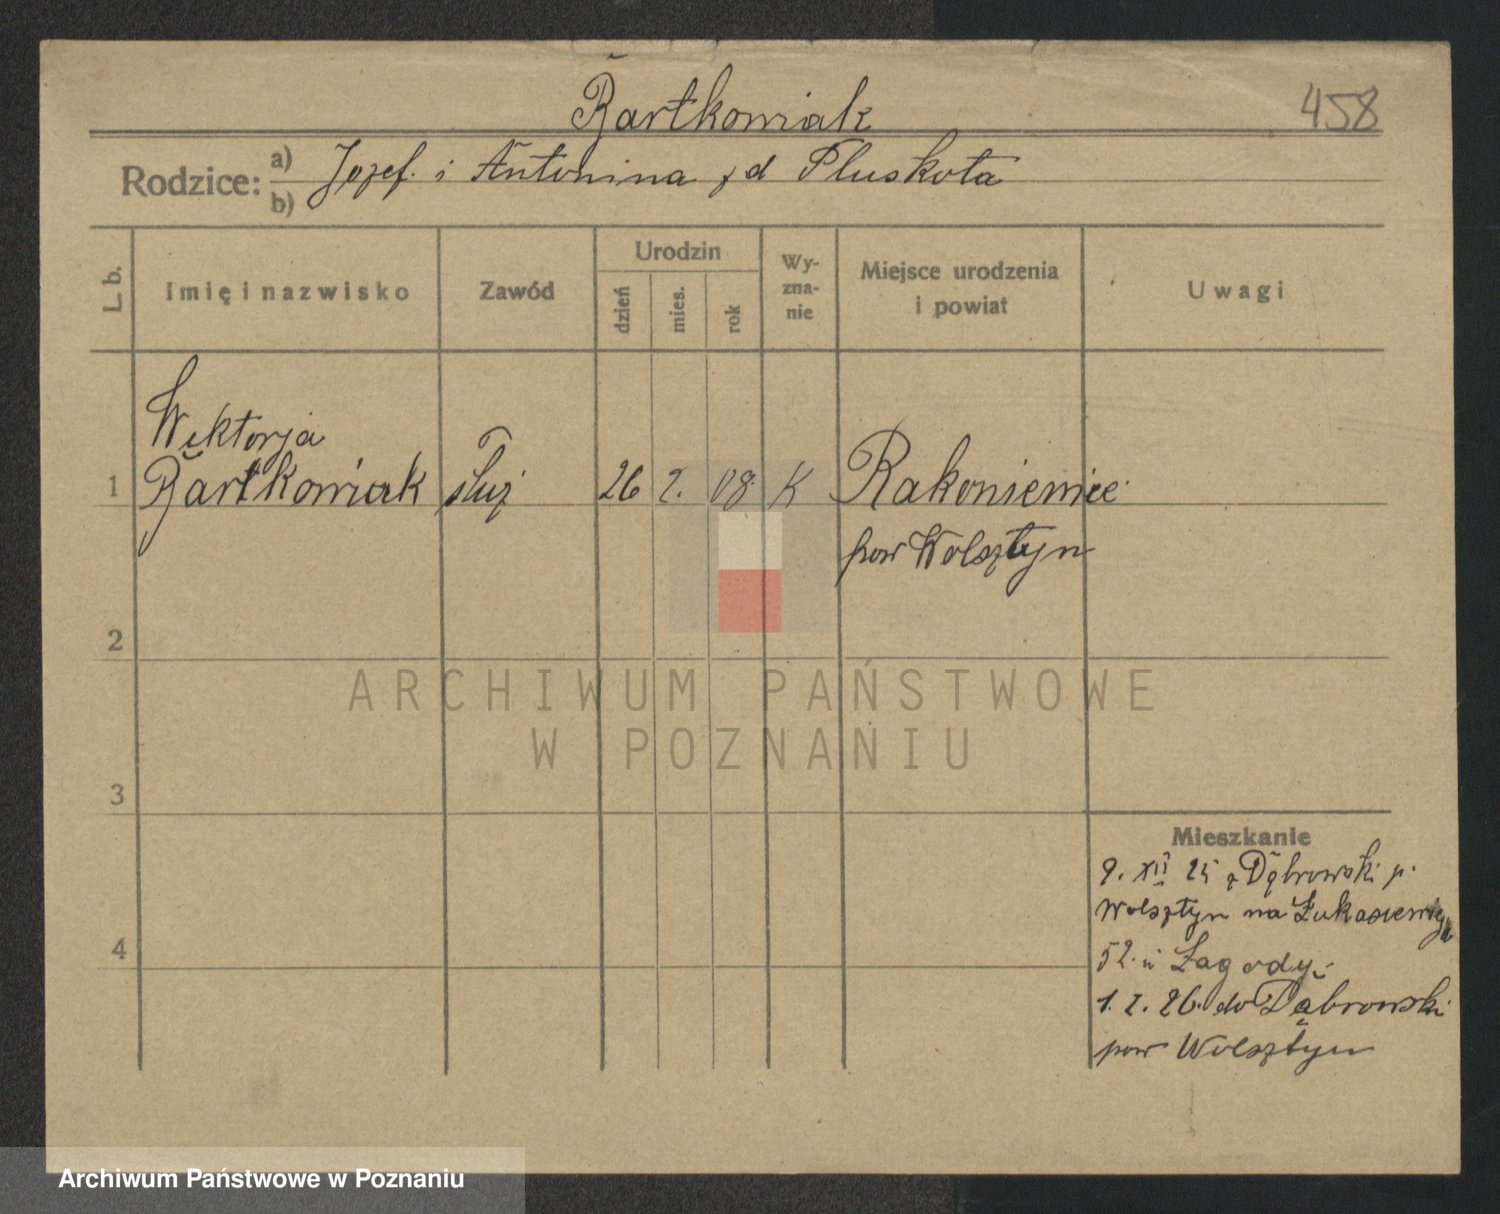 Bartkowiak
458
Rodzice: a) b) Jozef. i Antonina z d Pluskota
L. b.
Imię i nazwisko
Zawód
Urodzin
dzień
mies.
rok
Wy-
zna-
nie
Miejsce urodzenia
i powiat
Uwagi
Wiktorja
1 Bartkowiak służ 26 2. 08. K Rakoniewice
pow Wolsztyn
2
3
4
Mieszkanie
9. XII 25 z Dąbrowski p.
Wolsztyn na
52. u Łagody.
1. 2. 26. do Dąbrowski
pow Wolsztyn
ARCHIWUM PAŃSTWOWE
W POZNANIU
Archiwum Państwowe w Poznaniu